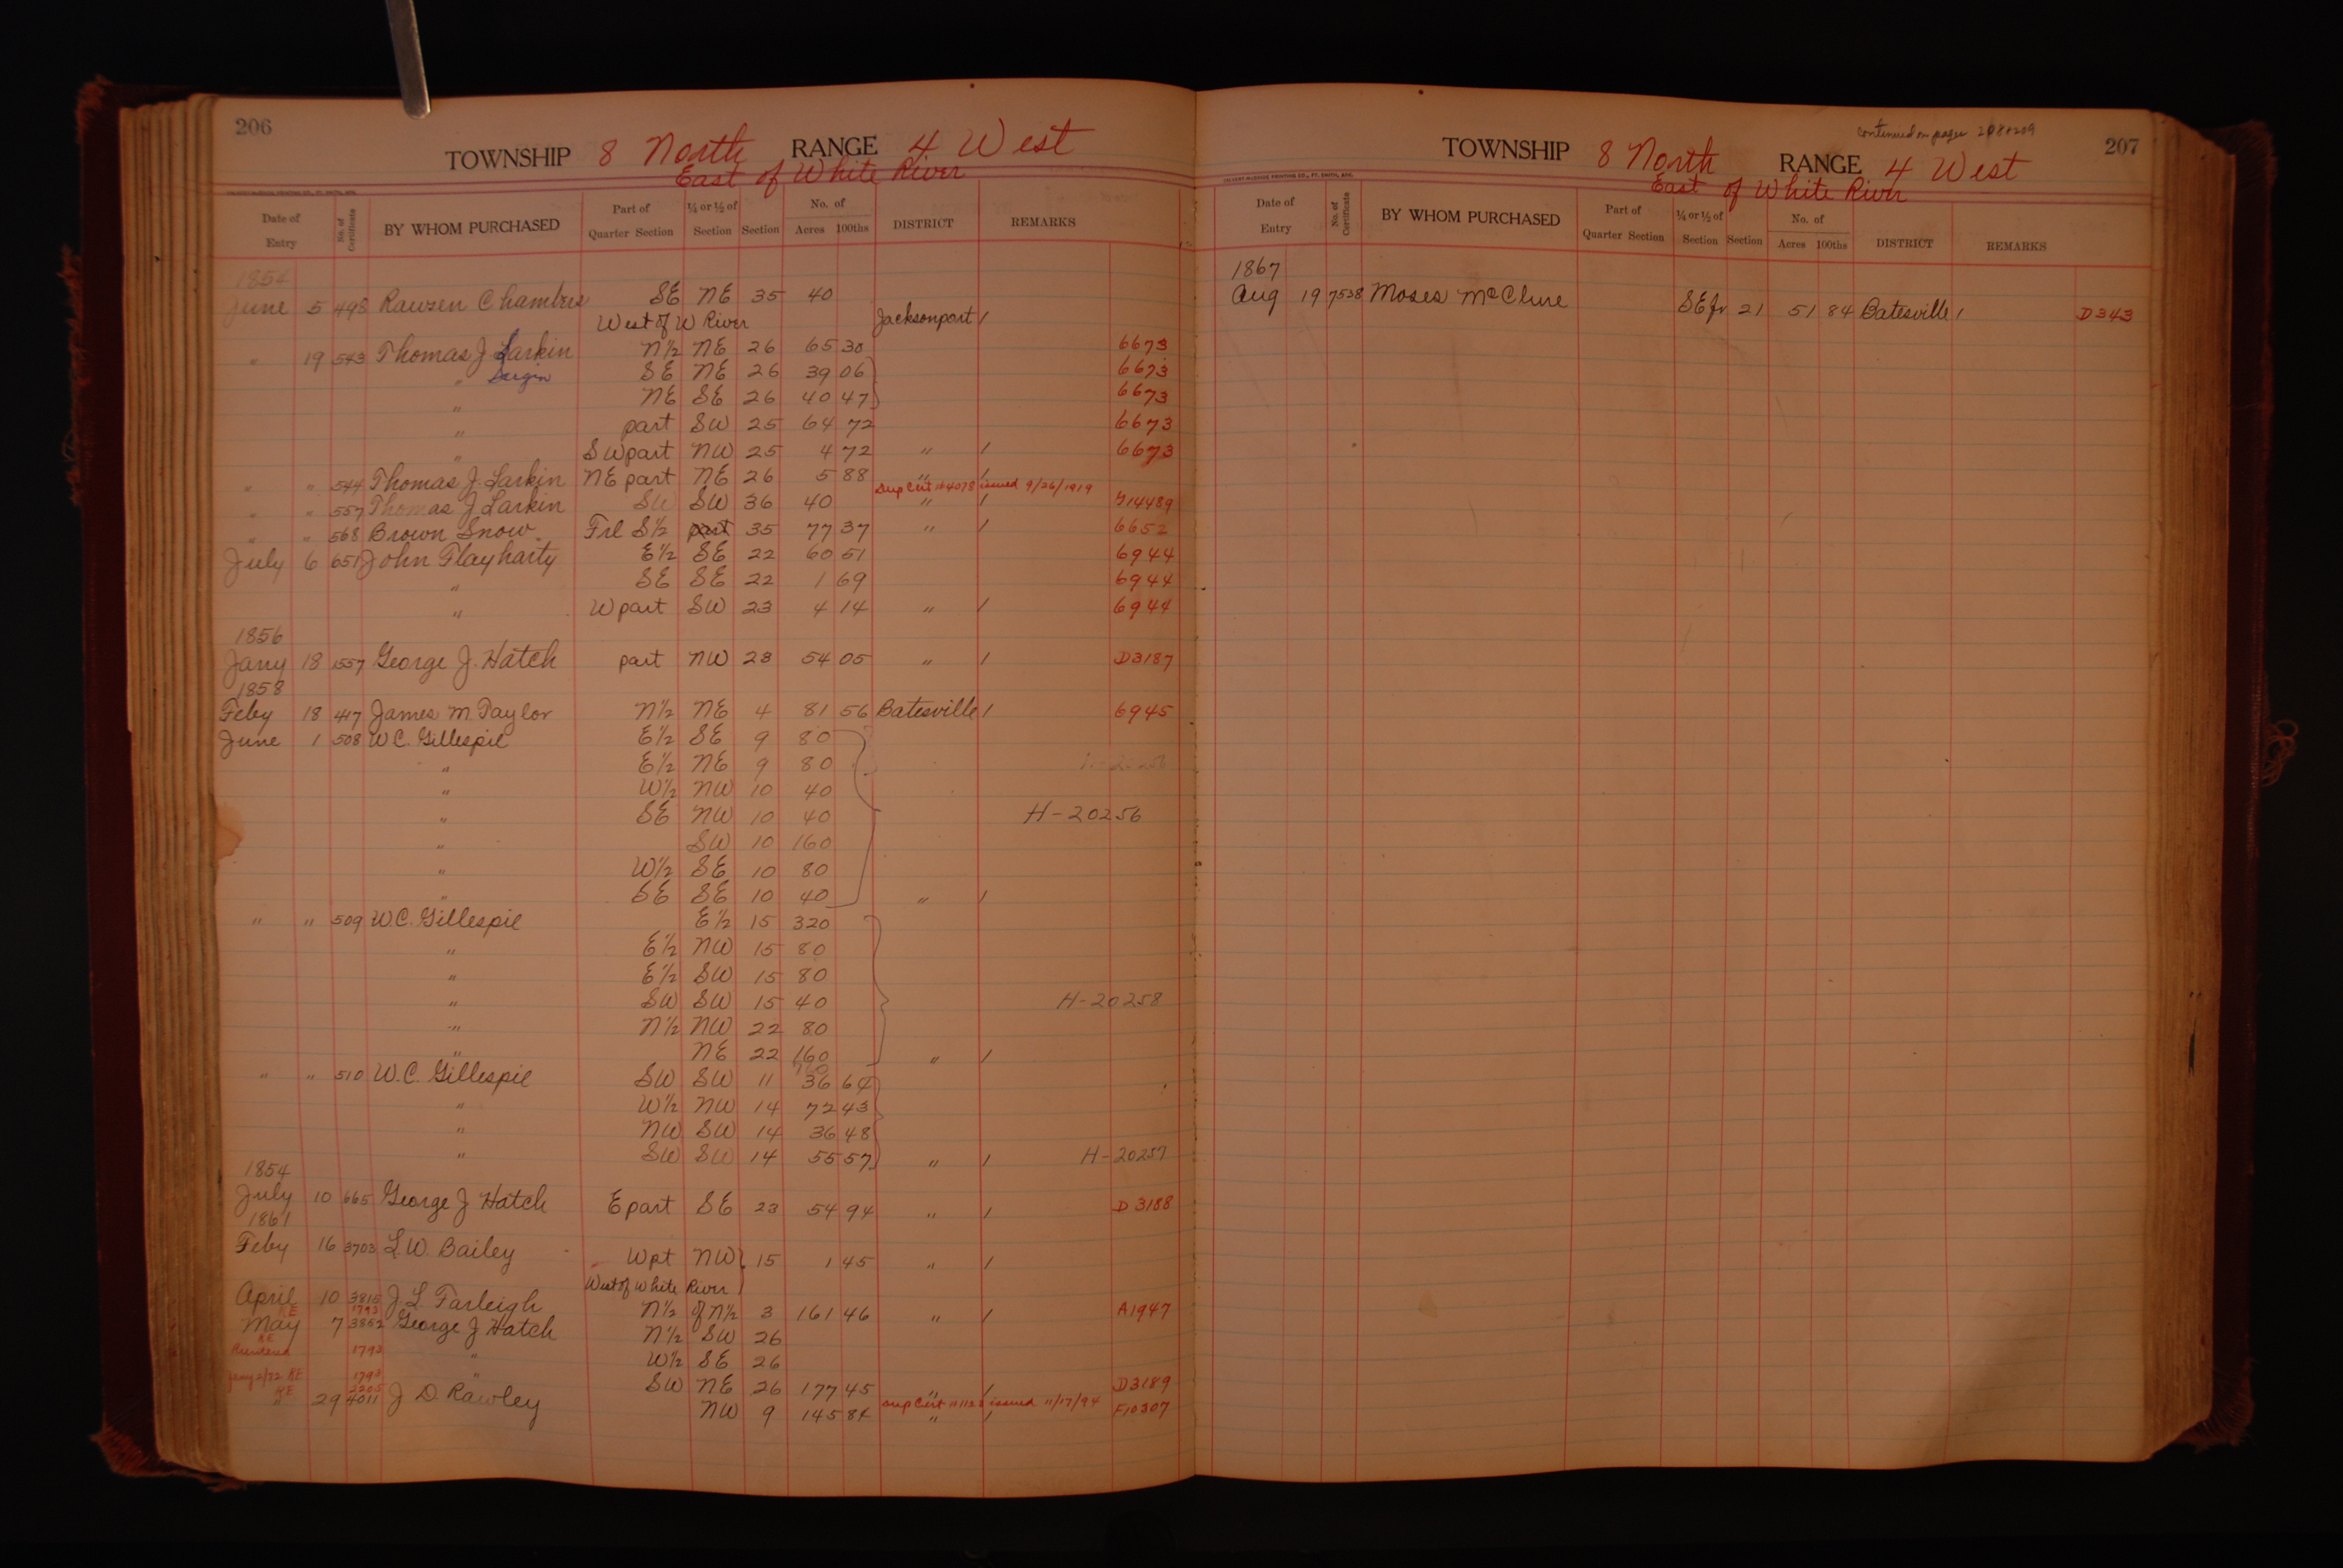 206
TOWNSHIP 8 North RANGE 4 West
East of White River
Date of Entry No. of Certificate BY WHOM PURCHASED Part of Quarter Section ¼ or ½ of Section Section No. of Acres 100ths DISTRICT REMARKS
1854
June 5 498 Rawzen Chambers SE NE 35 40
West of W River Jacksonport /
" 19 543 Thomas J Larkin N½ NE 26 65 30 6673
" Durgin SE NE 26 39 06 6673
" NE SE 26 40 47 6673
" part SW 25 64 72 6673
" SW part NW 25 4 72 " / 6673
" " 544 Thomas J. Larkin NE part NE 26 5 88 " /
Dup Cert # 4078 issued 9/26/1919
" " 557 Thomas J Larkin SW SW 36 40 " / 14489
" " 568 Brown Snow Frl S½ part 35 77 37 " / 6652
July 6 651 John Flayharty E½ SE 22 60 51 6944
" SE SE 22 1 69 6944
" W part SW 23 4 14 " / 6944
1856
Jany 18 1557 George J. Hatch part NW 23 54 05 " / D3187
1858
Feby 18 417 James M. Taylor N½ NE 4 81 56 Batesville / 6945
June 1 508 W.C. Gillespie E½ SE 9 80
" E½ NE 9 80
" W½ NW 10 40
" SE NW 10 40 H-20256
" SW 10 160
" W½ SE 10 80
" SE SE 10 40 " /
" " 509 W.C. Gillespie E½ 15 320
" E½ NW 15 80
" E½ SW 15 80
" SW SW 15 40 H-20258
" N½ NW 22 80
" NE 22 160 " /
" " 510 W.C. Gillespie SW SW 11 36 64
" W½ NW 14 72 43
" NW SW 14 36 48
" SW SW 14 55 57 " / H-20257
1854
July 10 665 George J Hatch E part SE 23 54 94 " / D 3188
1861
Feby 16 3703 L.W. Bailey W pt NW 15 1 45 " /
West of White River
April 10 3815 J. L. Farleigh N½ of N½ 3 161 46 " / A1947
RE 1793
May 7 3862 George J Hatch N½ SW 26
RE 1793 " W½ SE 26
Jany 2/72 RE 1793 " SW NE 26 177 45 " / D3189
RE 2205
" 29 4011 J D. Rawley NW 9 145 84 " / F10307
Dup Cert issued 11/17/94
Continued on pages 208 & 209
207
TOWNSHIP 8 North RANGE 4 West
East of White River
Date of Entry No. of Certificate BY WHOM PURCHASED Part of Quarter Section ¼ or ½ of Section Section No. of Acres 100ths DISTRICT REMARKS
1867
Aug 19 7538 Moses McClure SE fr 21 51 84 Batesville / D343